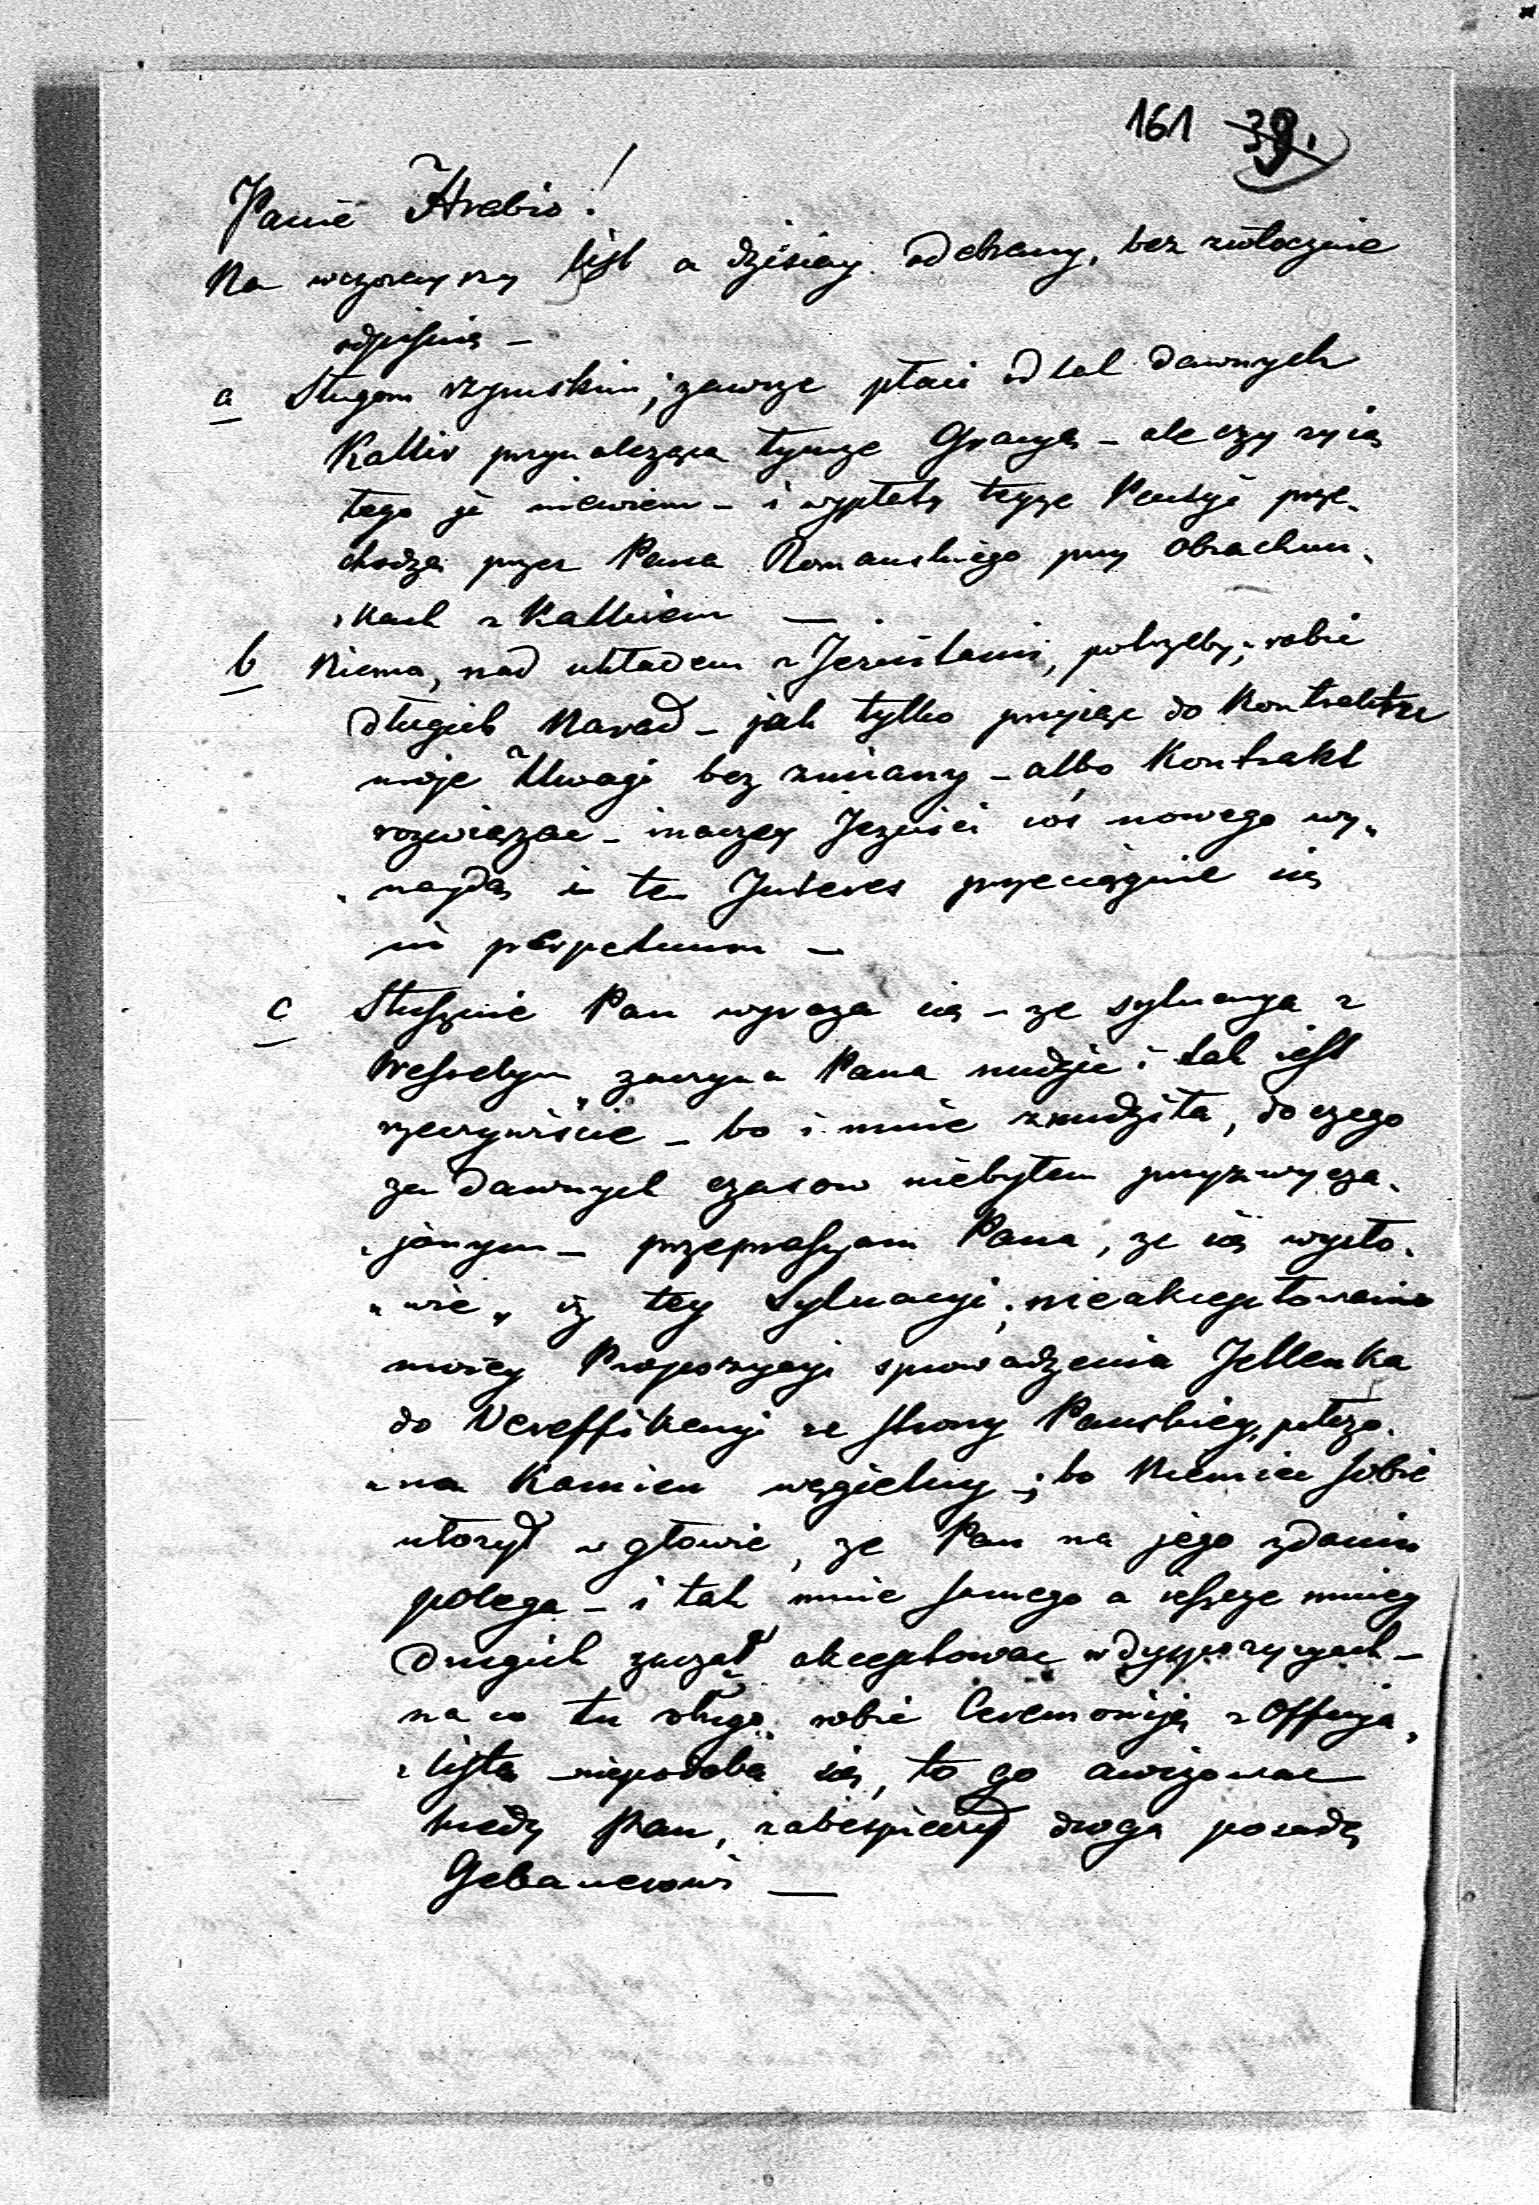 161 39.
Panie Hrabio!
Na wczorayszy list a dzisiay odebrany, bez zwłocznie
odpisuię –
a Sługom rzymskim, zawsze płaci od lat dawnych
Kallir przynalezącą tymze Gracyą – ale czy zyią
tego ja niewiem – i wypłaty teyze Pensyi prze-
chodzą przez Pana Romanskiego przy obrachun-
kach z Kallirem —
b Niema, nad układem z Jezuitami, potrzeby, robić
długich Narad – jak tylko przyiąć do Kontraktu
moje Uwagi bez zmiany – albo Kontrakt
rozwiązac – inaczey Jezuici coś nowego wy-
naydą i ten Interes przeciągnie się
in perpetuum –
c Słusznie Pan wyraza się – ze sytuacya z
Wesselym zaczyna Pana nudzić i tak iest
rzeczywiście – bo i mnie znudziła, do czego
za dawnych czasow niebyłem przyzwycza-
jonym – przepraszam Pana, ze się wysło-
wię, iz tey Sytuacyi, nieakceptowanie
moiey Propozycyi sprowadzenia Jellenka
do Wereffikacyi ze strony Panskiey, połozo-
na Kamien węgielny – bo Niemiec sobie
utorzył w głowie, ze Pan na jego zdaniu
polega – i tak mnie samego a ieszcze mniey
drugich zaczął akceptowac w dyspozycyach –
na co tu długo robić Ceremoniję z Officja-
listą niepodoba się, to go awizowac
kiedy Pan, zabespieczył drogą posadę
Gebauerowi —